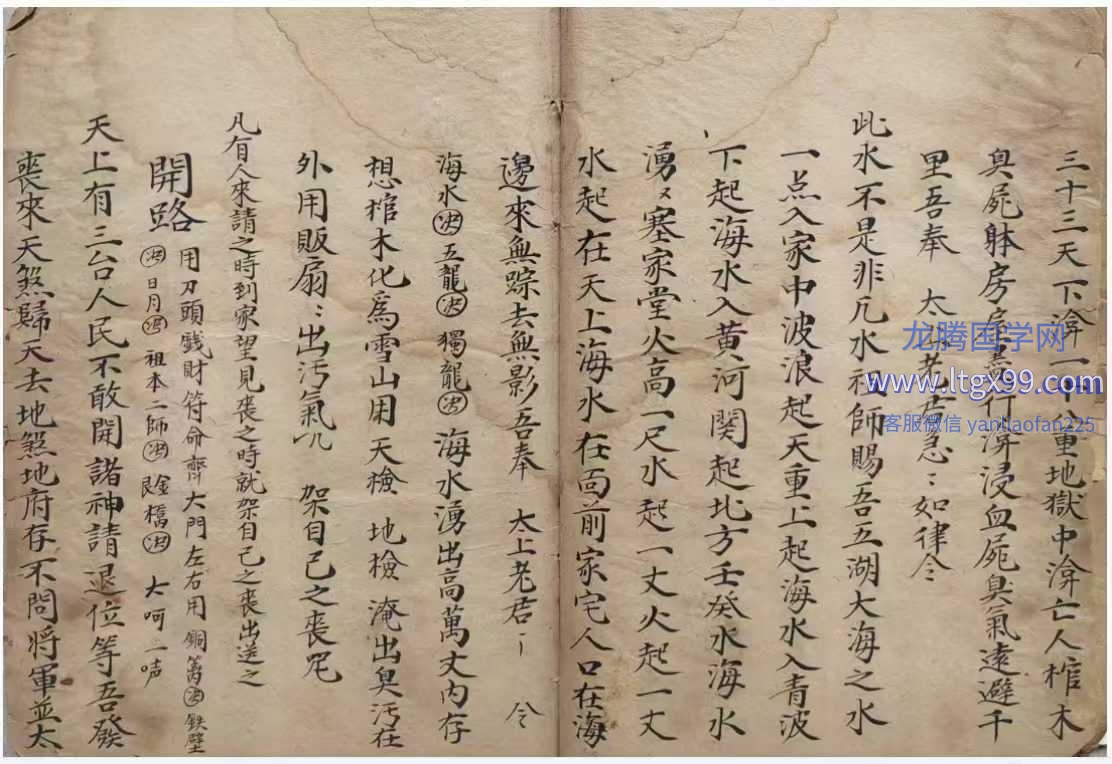 三十三天下渰一十八重地獄中渰亡人棺木
臭屍躰房屋行渰浸血屍臭氣遠避千
里吾奉 太上老君急〻如律令
此水不是非凡水祖師賜吾五湖大海之水
一点入家中波浪起天重上起海水入青波
下起海水入黄河関起北方壬癸水海水
湧〻塞家堂火高一尺水起一丈火起一丈
水起在天上海水在面前家宅人口在海
邊來無踪去無影吾奉 太上老君〻 令
海水 五龍 獨龍 海水湧出高萬丈内存
想棺木化爲雪山用天檢 地檢 淹出臭污在
外用販扇〻出污氣 架自己之喪咒
凡有人來請之時到家望見喪之時就架自己之喪出送之
開路 用刀頭戔財符命齊大門左右用銅篱 鉄壁
日月 祖本二師 橋 大呵一声
天上有三台人民不敢開諸神請退位等吾發
喪來天煞歸天去地煞地府存不問將軍並太
龙腾国学网
www.ltgx99.com
客服微信 yanliaofan225